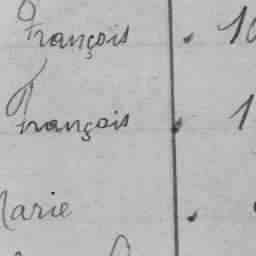 François . 10
François . 1
Marie .